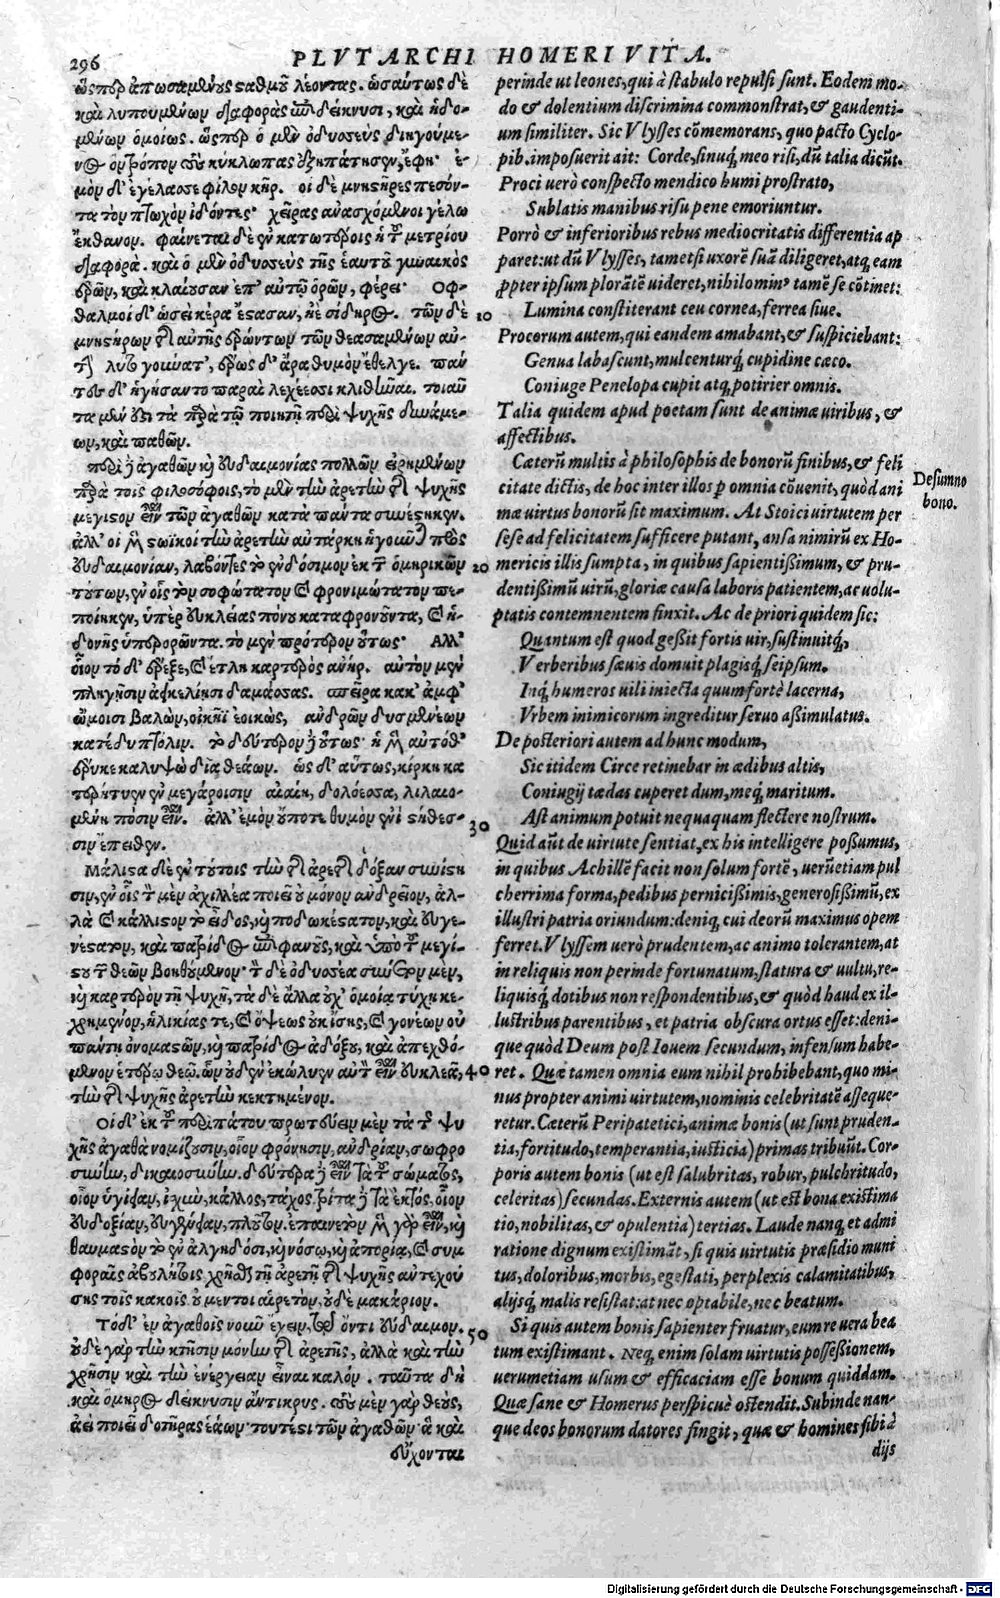 296 PLVTARCHI HOMERI VITA.
ὥσπερ ἀπωσαμένους σαθμοῦ λέοντας. ὡσαύτως δὲ
καὶ λυπουμένων διαφορὰς ἐπιδείκνυσι, καὶ ἡδο-
μένων ὁμοίως. ὥσπερ ὁ μὲν ὀδυσσεὺς διηγούμε-
νος ὃν τρόπον τοὺς κύκλωπας ἐξηπάτησεν, ἔφη· ἐ-
μὸν δ' ἐγέλασσε φίλον κῆρ. οἱ δὲ μνηστῆρες πεσόν-
τα τὸν πτωχὸν ἰδόντες· χεῖρας ἀνασχόμενοι γέλω
ἔκθανον. φαίνεται δὲ ἐν κατωτέροις ἡ τοῦ μετρίου
διαφορά. καὶ ὁ μὲν ὀδυσσεὺς τῆς ἑαυτοῦ γυναικὸς
ἐρῶν, καὶ κλαίουσαν ἐπ' αὐτῷ ὁρῶν, φέρει· Οφ-
θαλμοὶ δ' ὡσεὶ κέρα ἔστασαν, ἠὲ σίδηρος. τῶν δὲ 10
μνηστήρων τῆς αὐτῆς ἐρώντων τῶν θεασαμένων αὐ-
τῇ λυτο γούνατ', ἔρως δ' ἄρα θυμὸν ἔθελγε. παν
τες δ' ἡγήσαντο παραὶ λεχέεσσι κλιθῆναι. τοιαῦ
τα μὲν οὖν τὰ παρὰ τῷ ποιητῇ περὶ ψυχῆς δυνάμε-
ων, καὶ παθῶν.
περὶ δὲ ἀγαθῶν καὶ εὐδαιμονίας πολλῶν εἰρημένων
παρὰ τοῖς φιλοσόφοις, τὸ μὲν τὴν ἀρετὴν τῆς ψυχῆς
μέγιστον εἶναι τῶν ἀγαθῶν κατὰ πάντα συνέστηκεν.
ἀλλ' οἱ μὲν στωϊκοὶ τὴν ἀρετὴν αὐτάρκη ἡγοῦνται πρὸς
εὐδαιμονίαν, λαβόντες τὸ ἐνδόσιμον ἐκ τῶν ὁμηρικῶν 20
τούτων, ἐν οἷς τὸν σοφώτατον καὶ φρονιμώτατον πε-
ποίηκεν, ὑπὲρ εὐκλείας πόνου καταφρονοῦντα, καὶ ἡ-
δονῆς ὑπερορῶντα. τὸ μὲν πρότερον οὕτως· Αλλ'
οἷον τόδ' ἔρεξε, καὶ ἔτλη καρτερὸς ἀνήρ. αὐτὸν μὲν
πληγῇσιν ἀεικελίῃσι δαμάσσας. σπεῖρα κακ' ἀμφ'
ὤμοισι βαλὼν, οἰκῆϊ ἐοικὼς, ἀνδρῶν δυσμενέων
κατέδυ πτόλιν. τὸ δεύτερον δὲ οὕτως· ἡ μὲν αὐτόθ'
ἔρυκε καλυψὼ δῖα θεάων. ὡς δ' αὔτως, κίρκη κα
τερήτυεν ἐν μεγάροισιν αἰαίη, δολόεσσα, λιλαιο-
μένη πόσιν εἶναι. ἀλλ' ἐμὸν οὔποτε θυμὸν ἐνὶ στήθεσ- 30
σιν ἔπειθεν.
Μάλιστα δὲ ἐν τούτοις τὴν τῆς ἀρετῆς δόξαν συνίστη
σιν, ἐν οἷς τὸν μὲν ἀχιλλέα ποιεῖ οὐ μόνον ἀνδρεῖον, ἀλ-
λὰ καὶ κάλλιστον τὸ εἶδος, καὶ ποδωκέστατον, καὶ εὐγε-
νέστατον, καὶ πατρίδος ἐπιφανοῦς, καὶ ὑπὸ τοῦ μεγί-
στου τῶν θεῶν βοηθούμενον· τὸν δὲ ὀδυσσέα συνετὸν μὲν,
καὶ καρτερὸν τῇ ψυχῇ, τὰ δὲ ἄλλα οὐχ' ὁμοίᾳ τύχῃ κε-
χρημένον, ἡλικίας τε, καὶ ὄψεως οὐκ ἴσης, καὶ γονέων οὐ
πάντῃ ὀνομαστῶν, καὶ πατρίδος ἀδόξου, καὶ ἀπεχθό-
μενον ἑτέρῳ θεῷ. ὧν οὐδὲν ἐκώλυεν αὐτὸν εἶναι εὐκλεᾶ, 40
τὴν τῆς ψυχῆς ἀρετὴν κεκτημένον.
Οἱ δ' ἐκ τοῦ περιπάτου πρωτεύειν μὲν τὰ τῆς ψυ
χῆς ἀγαθὰ νομίζουσιν, οἷον φρόνησιν, ἀνδρίαν, σωφρο
σύνην, δικαιοσύνην. δεύτερα δὲ εἶναι τὰ τοῦ σώματος,
οἷον ὑγίειαν, ἰσχὺν, κάλλος, τάχος. τρίτα δὲ τὰ ἐκτὸς. οἷον
εὐδοξίαν, εὐγένειαν, πλοῦτον. ἐπαινετὸν μὲν γὰρ εἶναι, καὶ
θαυμαστὸν τὸ ἐν ἀλγηδόσι, καὶ νόσῳ, καὶ ἀπορίᾳ, καὶ συμ
φοραῖς ἀβουλήτοις χρῆσθαι τῇ ἀρετῇ τῆς ψυχῆς αὐτεχού
σης τοῖς κακοῖς. οὐ μέντοι αἱρετὸν, οὐδὲ μακάριον.
Τὸ δ' ἐν ἀγαθοῖς νοῦν ἔχειν, τῷ ὄντι εὐδαιμον. 50
οὐδὲ γὰρ τὴν κτῆσιν μόνην τῆς ἀρετῆς, ἀλλὰ καὶ τὴν
χρῆσιν καὶ τὴν ἐνέργειαν εἶναι καλόν. ταῦτα δὴ
καὶ ὅμηρος δείκνυσιν ἄντικρυς. τοὺς μὲν γὰρ θεοὺς,
ἀεὶ ποιεῖ δοτῆρας ἑάων. τουτέστι τῶν ἀγαθῶν. ἃ καὶ
εὔχονται
perinde ut leones, qui à stabulo repulsi sunt. Eodem mo-
do & dolentium discrimina commonstrat, & gaudenti-
um similiter. Sic Vlysses cōmemorans, quo pacto Cyclo-
pib. imposuerit ait: Corde, sinuq́; meo risi, dū talia dicūt.
Proci uerò conspecto mendico humi prostrato,
Sublatis manibus risu pene emoriuntur.
Porrò & inferioribus rebus mediocritatis differentia ap
paret: ut dū Vlysses, tametsi uxorē suā diligeret, atq; eam
ꝓpter ipsum plorātē uideret, nihilomin' tamē se cōtinet:
Lumina constiterant ceu cornea, ferrea siue.
Procorum autem, qui eandem amabant, & suspiciebant:
Genua labascunt, mulcenturq́; cupidine cæco.
Coniuge Penelopa cupit atq; potirier omnis.
Talia quidem apud poetam sunt de animæ uiribus, &
affectibus.
Cæterū multis à philosophis de bonorū finibus, & feli
citate dictis, de hoc inter illos p omnia cōuenit, quòd ani
mæ uirtus bonorū sit maximum. At Stoici uirtutem per
se se ad felicitatem sufficere putant, ansa nimirū ex Ho-
mericis illis sumpta, in quibus sapientissimum, & pru-
dentissimū uirū, gloriæ causa laboris patientem, ac uolu-
ptatis contemnentem finxit. Ac de priori quidem sic:
Quantum est quod geßit fortis uir, sustinuitq́;,
Verberibus sæuis domuit plagisq́; seipsum.
Inq́; humeros uili iniecta quum fortè lacerna,
Vrbem inimicorum ingreditur seruo aßimulatus.
De posteriori autem ad hunc modum,
Sic itidem Circe retinebar in ædibus altis,
Coniugij tædas cuperet dum, meq́; maritum.
Ast animum potuit nequaquam flectere nostrum.
Quid aūt de uirtute sentiat, ex his intelligere poßumus,
in quibus Achillē facit non solum fortē, uerūetiam pul
cherrima forma, pedibus pernicißimis, generosißimū, ex
illustri patria oriundum: deniq; cui deorū maximus opem
ferret. Vlyssem uerò prudentem, ac animo tolerantem, at
in reliquis non perinde fortunatum, statura & uultu, re-
liquisq́; dotibus non respondentibus, & quòd haud ex il-
lustribus parentibus, et patria obscura ortus esset: deni-
que quòd Deum post Iouem secundum, infensum habe-
ret. Quæ tamen omnia eum nihil prohibebant, quo mi-
nus propter animi uirtutem, nominis celebritatē asseque-
retur. Cæterū Peripatetici, animæ bonis (ut sunt pruden-
tia, fortitudo, temperantia, iusticia) primas tribuūt. Cor-
poris autem bonis (ut est salubritas, robur, pulchritudo,
celeritas) secundas. Externis autem (ut est bona existima
tio, nobilitas, & opulentia) tertias. Laude nanq; et admi
ratione dignum existimāt, si quis uirtutis præsidio muni
tus, doloribus, morbis, egestati, perplexis calamitatibus,
alijsq́; malis resistat: at nec optabile, nec beatum.
Si quis autem bonis sapienter fruatur, eum re uera bea
tum existimant. Neq; enim solam uirtutis possessionem,
uerumetiam usum & efficaciam esse bonum quiddam.
Quæ sane & Homerus perspicuè ostendit. Subinde nan-
que deos bonorum datores fingit, quæ & homines sibi à
dijs
De summo
bono.
Digitalisierung gefördert durch die Deutsche Forschungsgemeinschaft - DFG